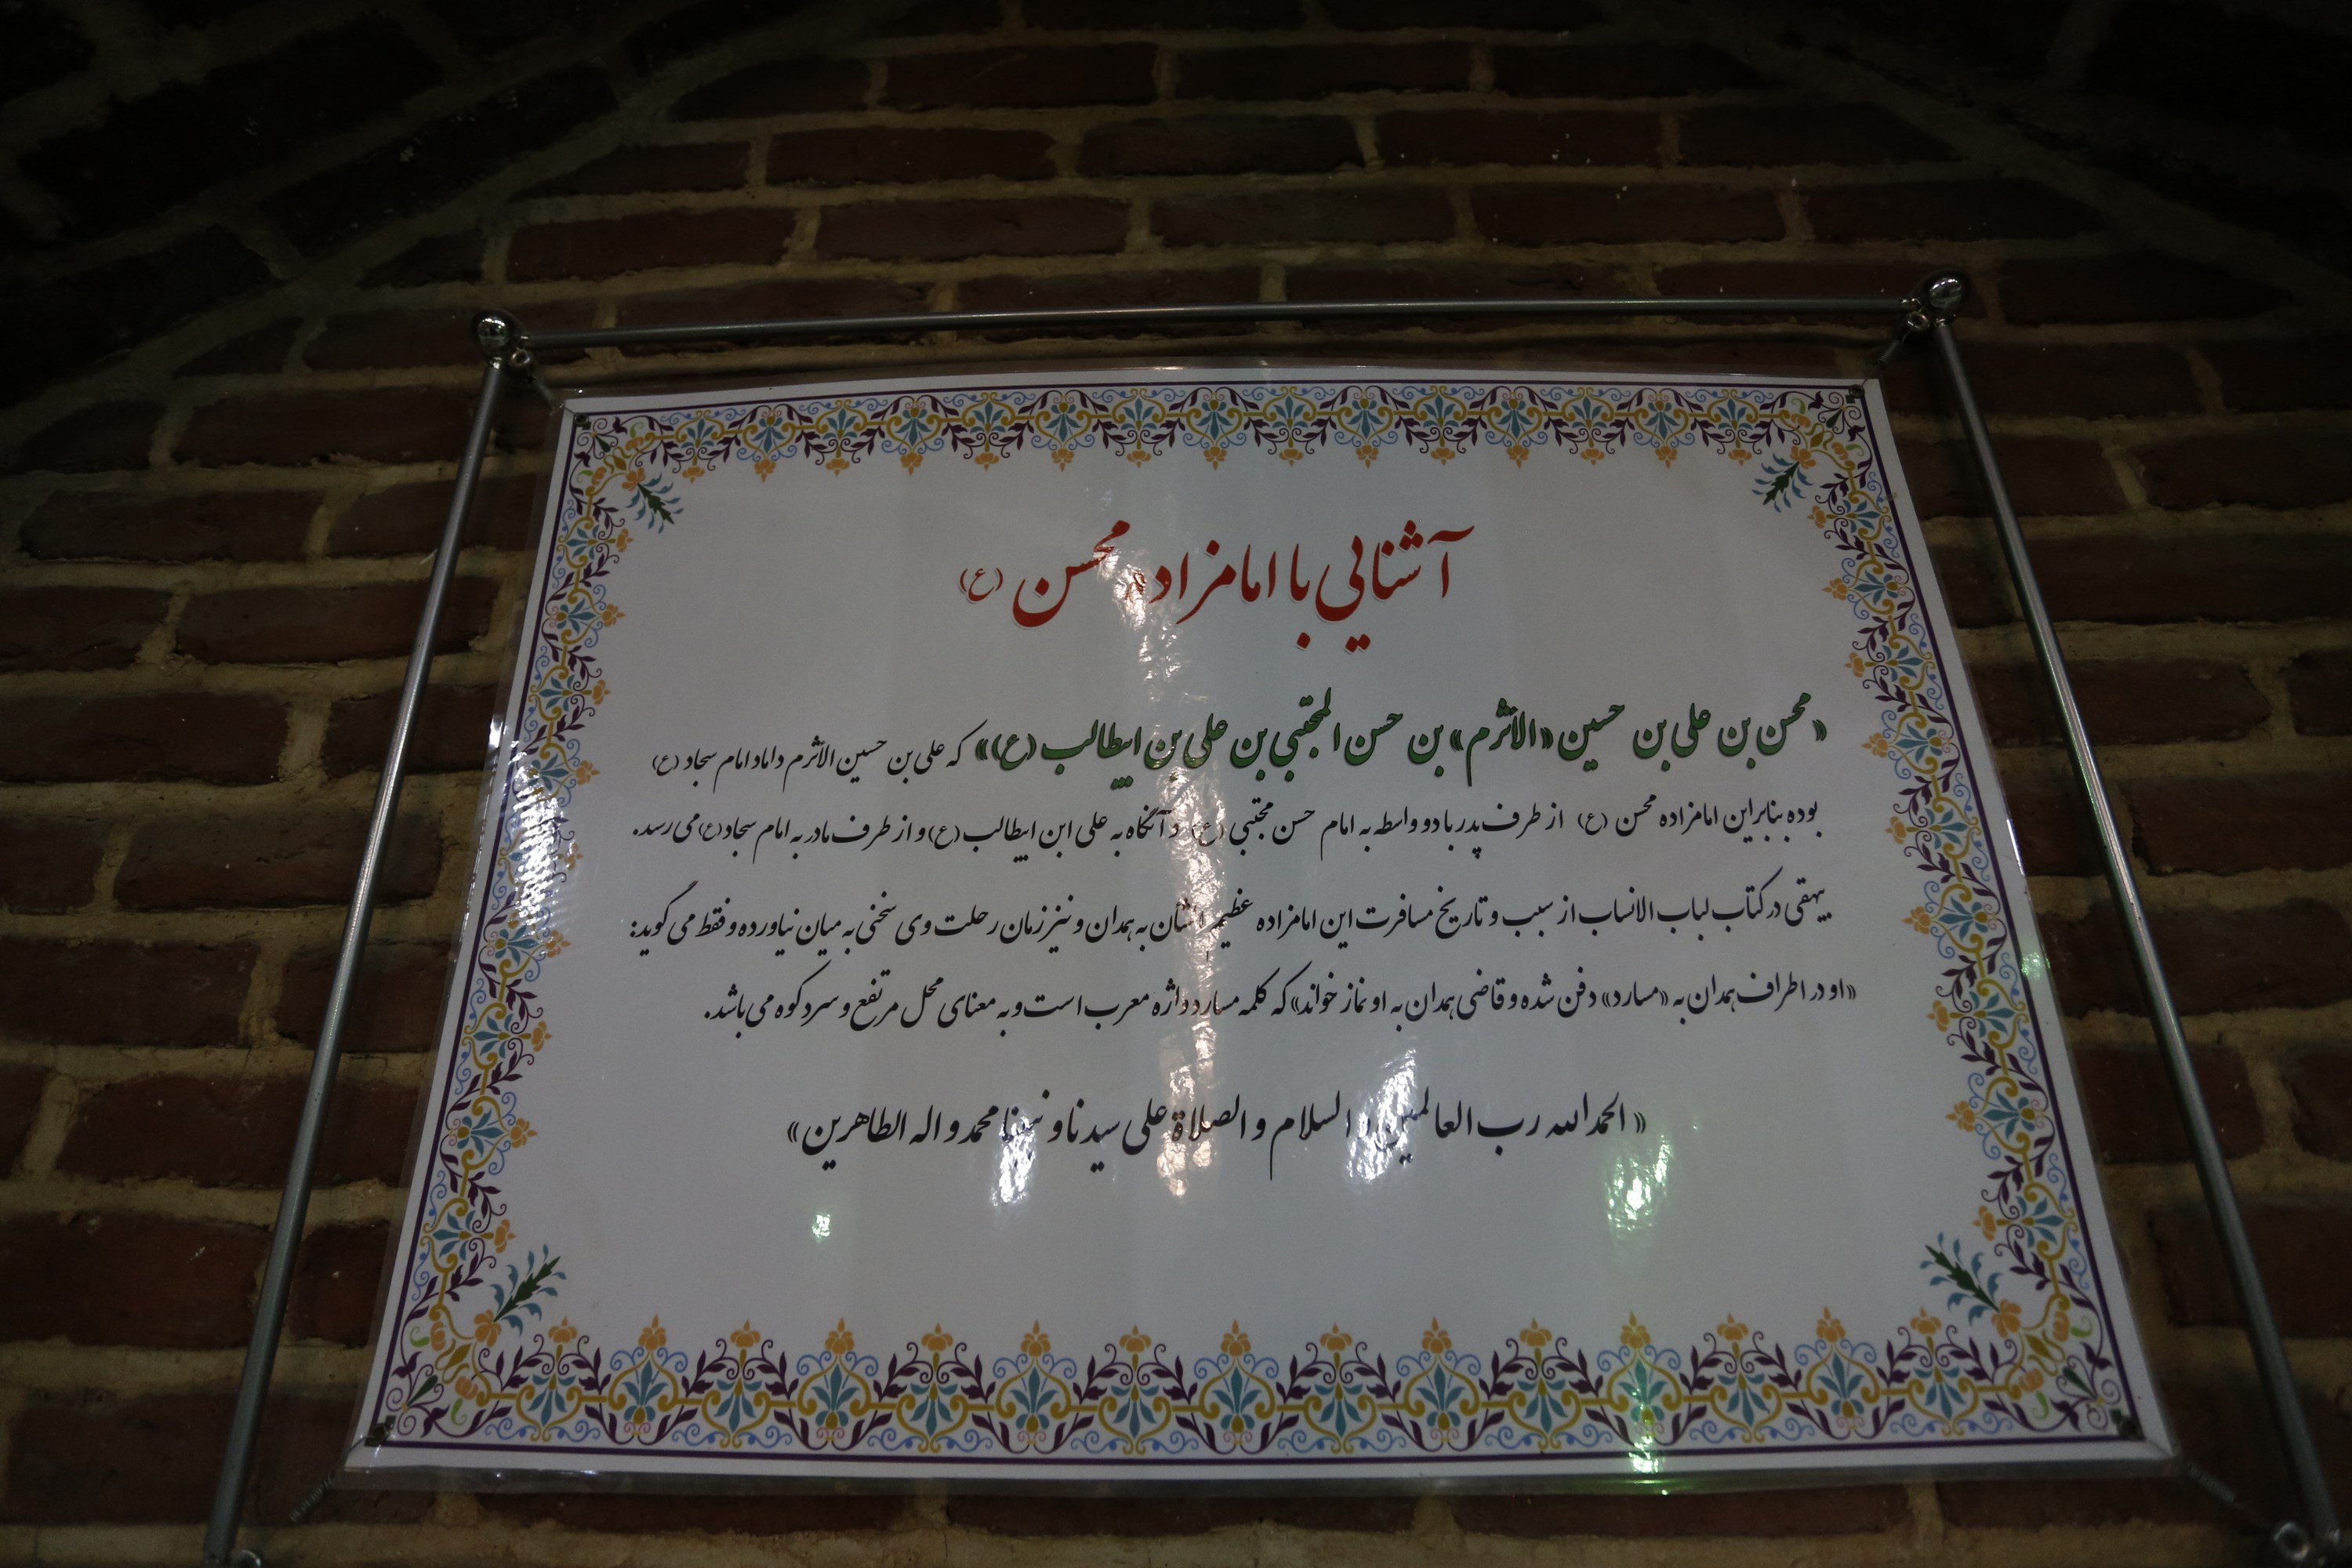 آشنایی با امامزاده محسن (ع)
«محسن بن علی بن حسین «الاثرم» بن حسن المجتبی بن علی بن ابیطالب (ع)» که علی بن حسین الاثرم داماد امام سجاد (ع)
بوده بنابراین امامزاده محسن (ع) از طرف پدر با دو واسطه به امام حسن مجتبی (ع) و آنگاه به علی ابن ابیطالب (ع) و از طرف مادر به امام سجاد (ع) می رسد.
بیهقی در کتاب لباب الانساب از سبب و تاریخ مسافرت این امامزاده عظیم الشأن به همدان و نیز زمان رحلت وی سخنی به میان نیاورده و فقط می گوید:
«او در اطراف همدان به «مسارد» دفن شده و قاضی همدان به او نماز خواند» که کلمه مسارد واژه معرب است و به معنای محل مرتفع و سرد کوه می باشد.
«الحمدالله رب العالمین و السلام و الصلاة علی سیدنا و نبینا محمد و اله الطاهرین»